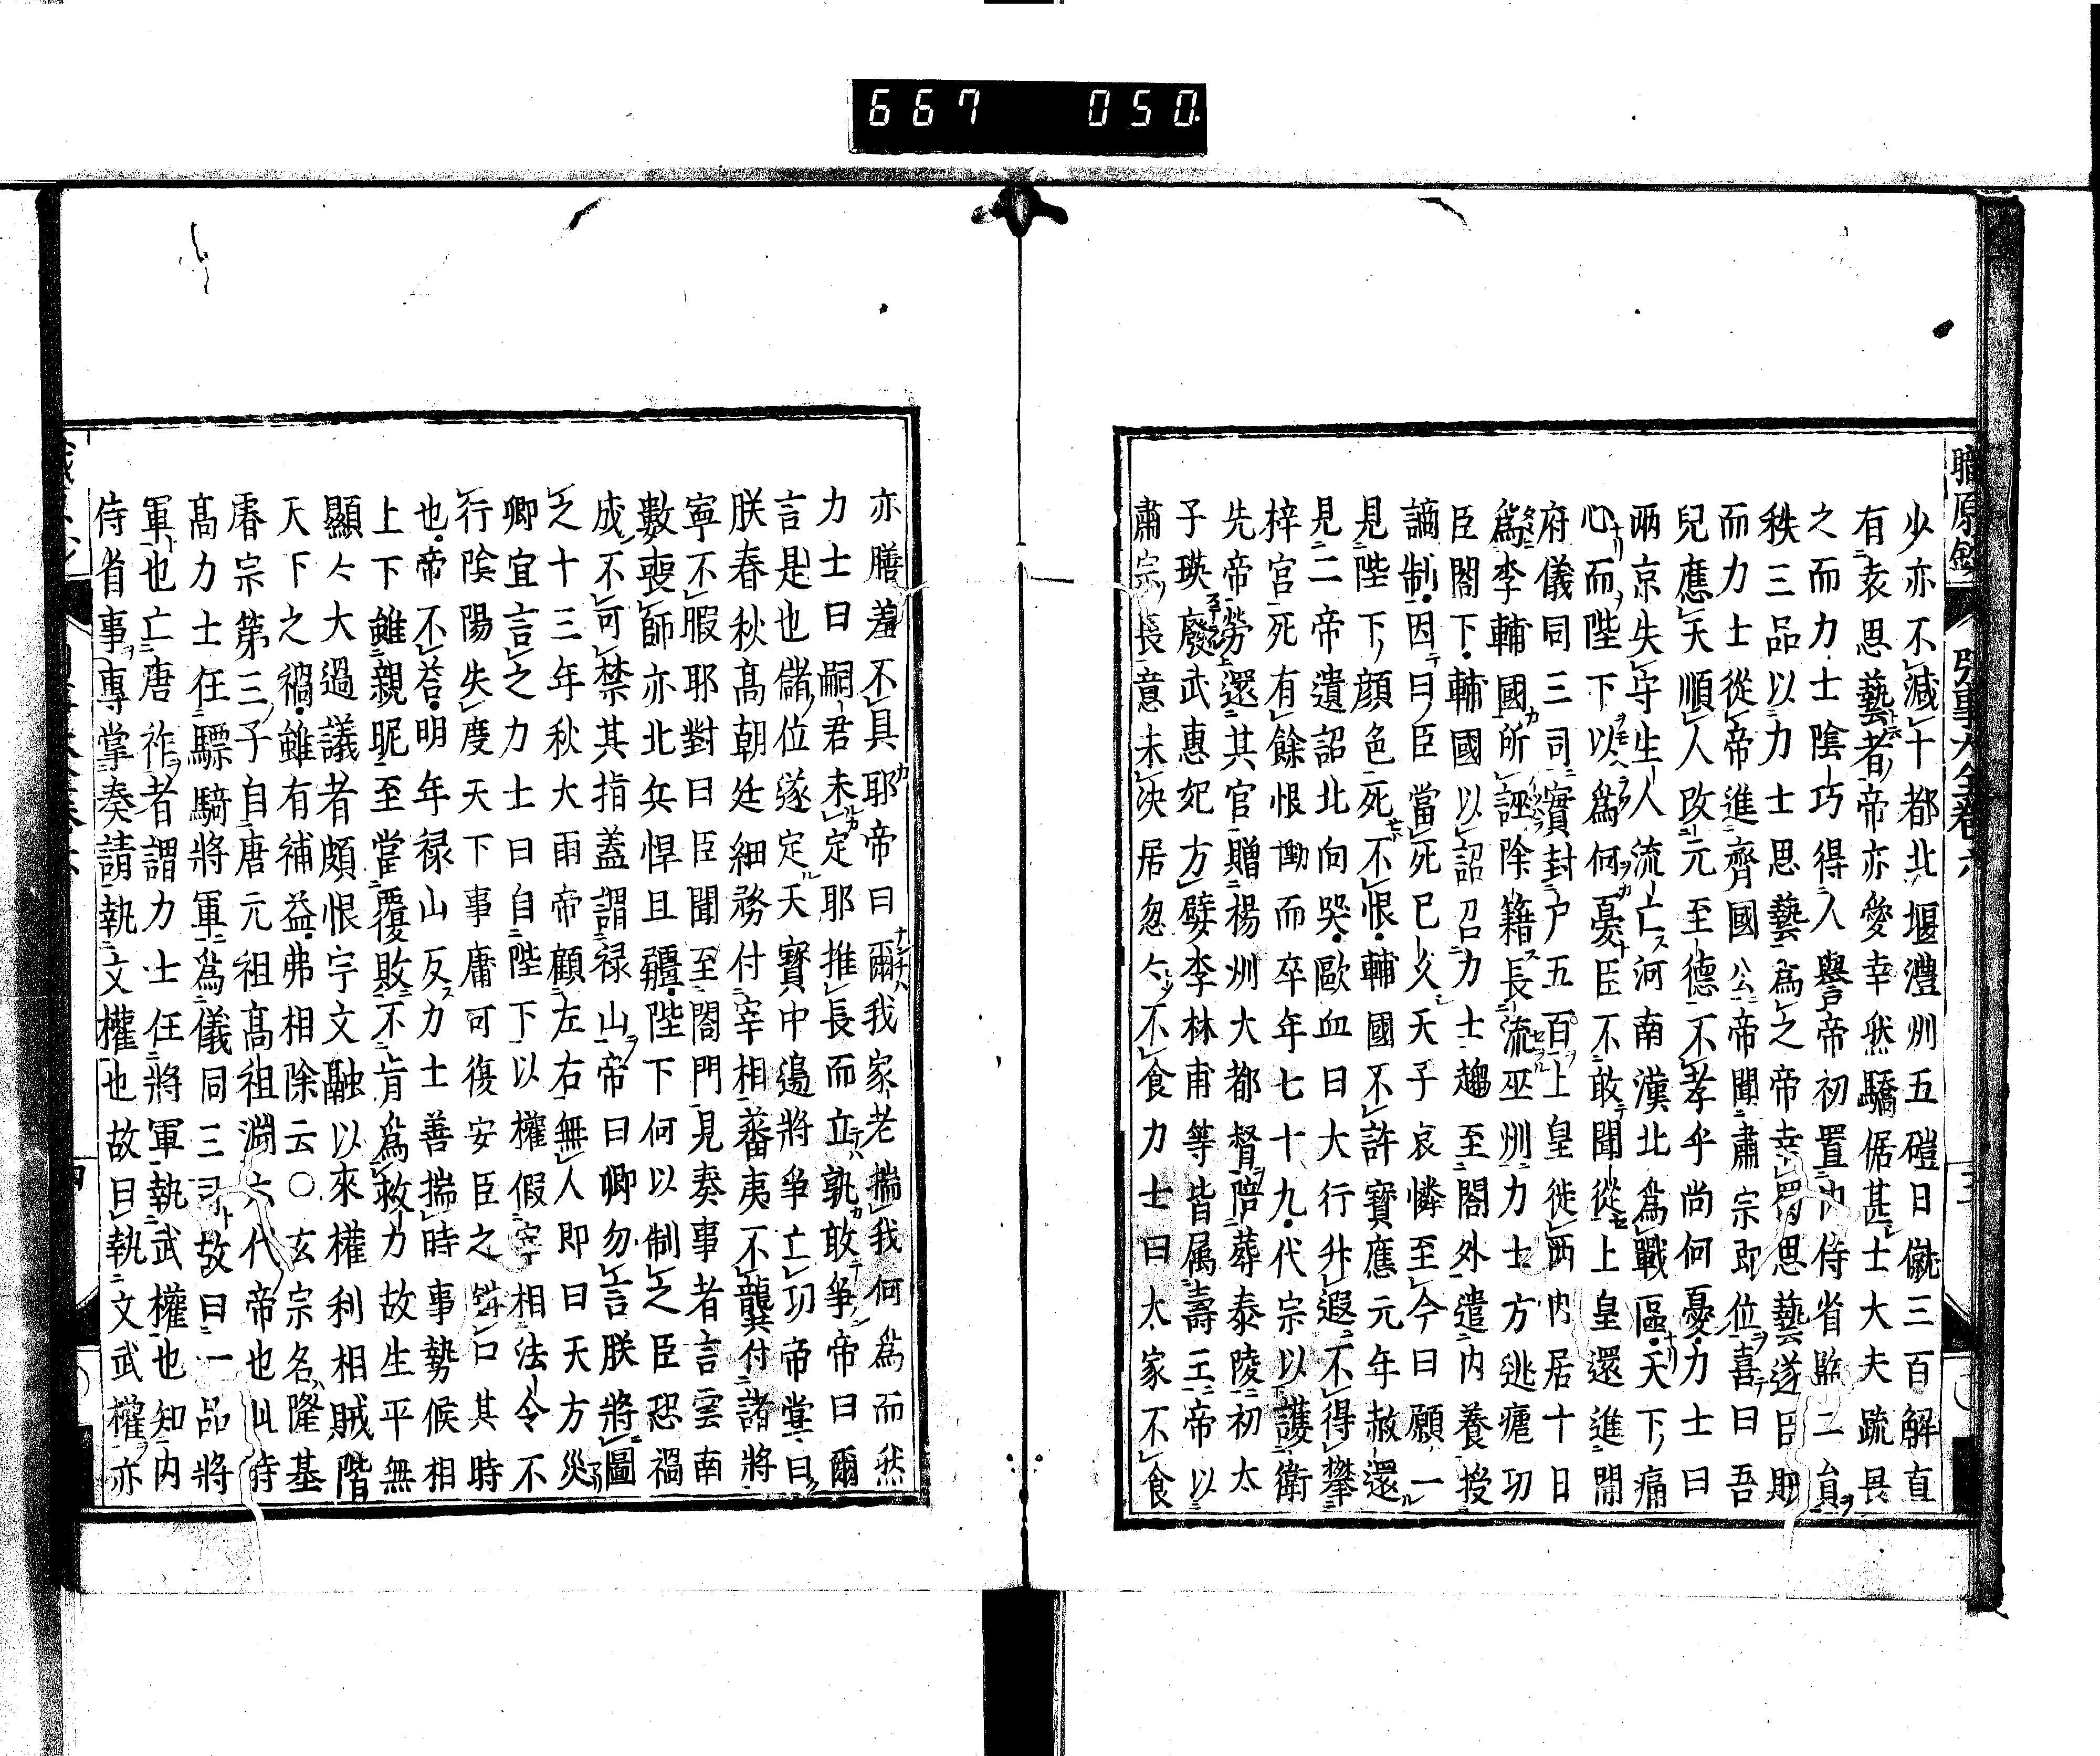 667 050
職原鈔 引事大全卷六
少亦不減十都北堰澧州五磑日僦三百解直
有袁思藝者帝亦愛幸然驕倨甚士大夫疏畏
之而力士陰巧得人譽帝初置内侍省監二員
秩三品以力士思藝爲之帝幸蜀思藝遂臣賊
而力士從帝進齊國公帝聞肅宗即位喜曰吾
兒應天順人改元至德不孝乎尚何憂力士曰
兩京失守生人流亡河南漢北爲戰區天下痛
心而陛下以爲何憂臣不敢聞從上皇還進開
府儀同三司實封戸五百上皇徙西内居十日
爲李輔國所誣除籍長流巫州力士方逃瘧功
臣閣下輔國以詔召力士趨至閣外遣内養授
謫制因曰臣當死已久天子哀憐至今日願一
見陛下顔色死不恨輔國不許寶應元年赦還
見二帝遺詔北向哭歐血曰大行升遐不得攀
梓宮死有餘恨慟而卒年七十九代宗以護衛
先帝勞還其官贈楊州大都督陪葬泰陵初太
子瑛廢武惠妃方嬖李林甫等皆属壽王帝以
肅宗長意未決居忽々不食力士曰大家不食
亦膳羞不具耶帝曰爾我家老揣我何爲而然
力士曰嗣君未定耶推長而立孰敢爭帝曰爾
言是也儲位遂定天寶中邉將爭亡功帝嘗曰
朕春秋高朝廷細務付宰相蕃夷不龔付諸將
寧不暇耶對曰臣聞至閤門見奏事者言雲南
數喪師亦北兵悍且疆陛下何以制之臣恐禍
成不可禁其指蓋謂禄山帝曰卿勿言朕將圖
之十三年秋大雨帝顧左右無人即曰天方災
卿宜言之力士曰自陛下以權假宰相法令不
行陰陽失度天下事庸可復安臣之鉗口其時
也帝不荅明年禄山反力士善揣時事勢候相
上下雖親昵至當覆敗不肯爲救力故生平無
顯々大過議者頗恨宇文融以來權利相賊階
天下之禍雖有補益弗相除云○玄宗名隆基
睿宗第三子自唐元祖高祖淵六代帝也此時
高力士任驃騎將軍爲儀同三司故曰一品將
軍也亡唐祚者謂力士任將軍執武權也知内
侍省事專掌奏請執文權也故曰執文武權亦